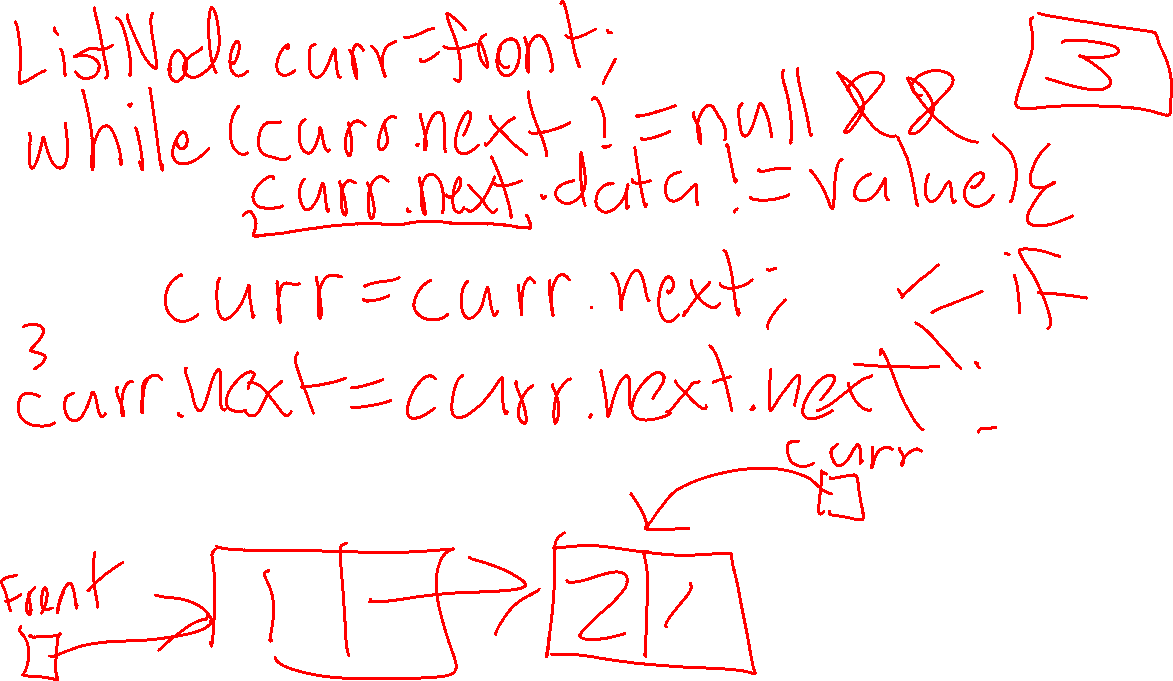 ListNode curr=front;
3
while (curr.next != null &&
curr.next.data != value) {
curr = curr.next;
if
}
curr.next = curr.next.next;
curr
Front
1
2